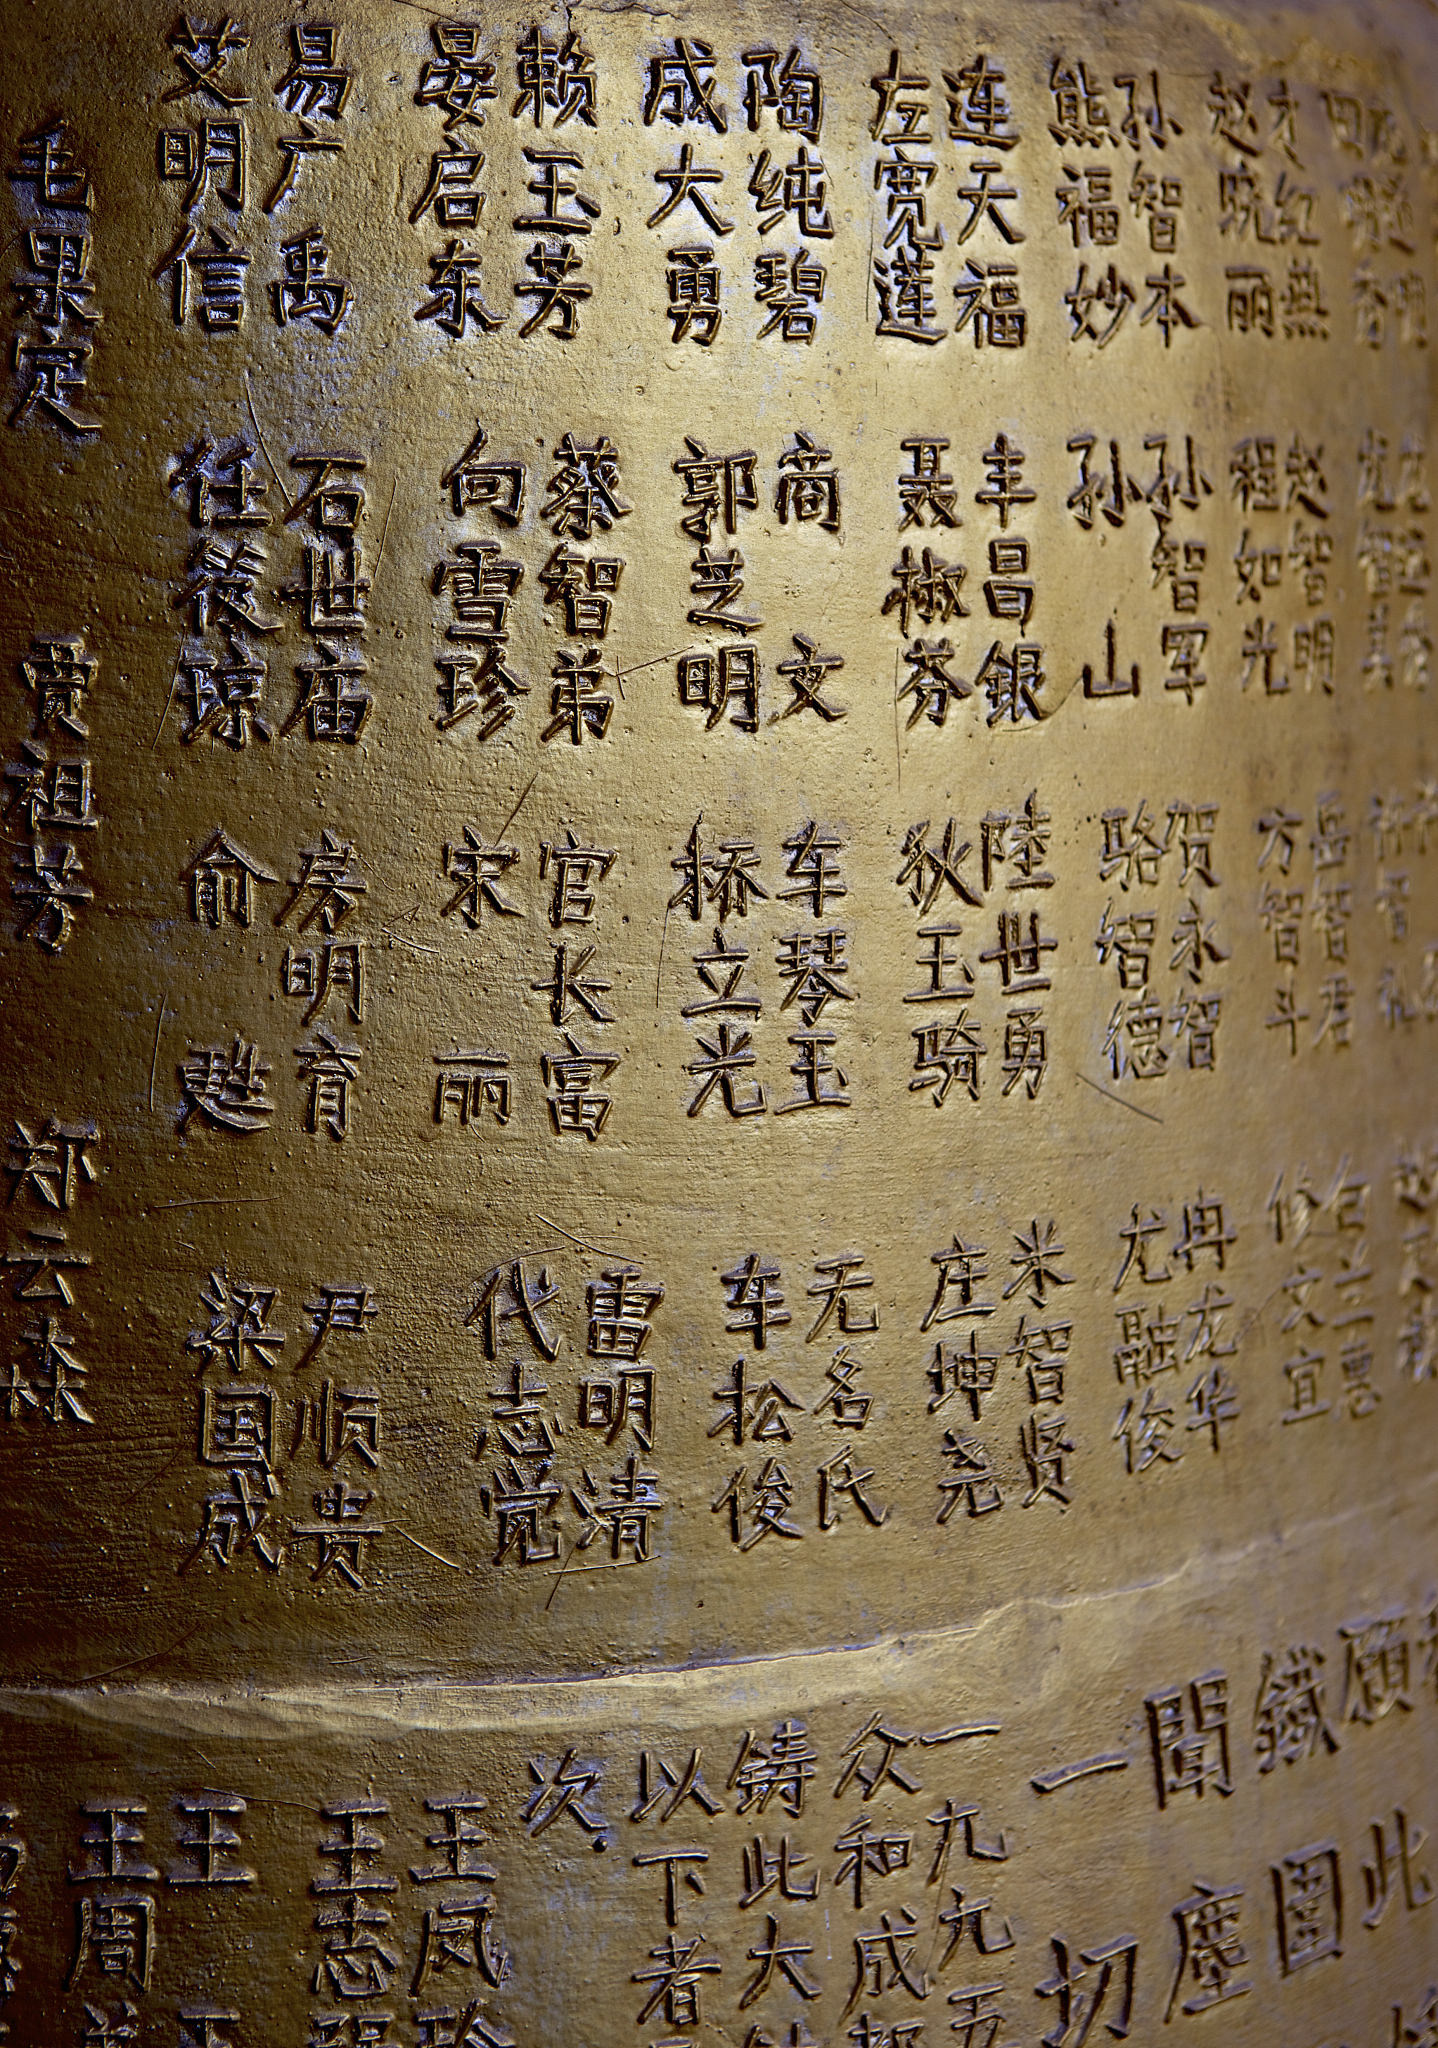 才红燕
赵晓丽
孙智本
熊福妙
连天福
左宽蓮
陶纯碧
成大勇
赖玉芳
晏启东
易广禹
艾明信
毛果定
赵智明
程如光
孙智军
孙山
丰昌银
聂椒芬
商文
郭芝明
蔡智弟
向雪珍
石世庙
任筱琼
贾祖芳
岳智君
方智斗
贺永智
骆智德
陸世勇
狄玉骑
车琴玉
桥立光
官长富
宋丽
房明育
俞甦
郑云森
修文宜
冉龙华
尤融俊
米智贤
庄坤尧
无名氏
车松俊
雷明清
代志觉
尹顺贵
梁国成
願此
鐵圍
聞塵
一切
一九九五
众和成都
铸此大
以下者
次.
王凤珍
王志强
王王
王周